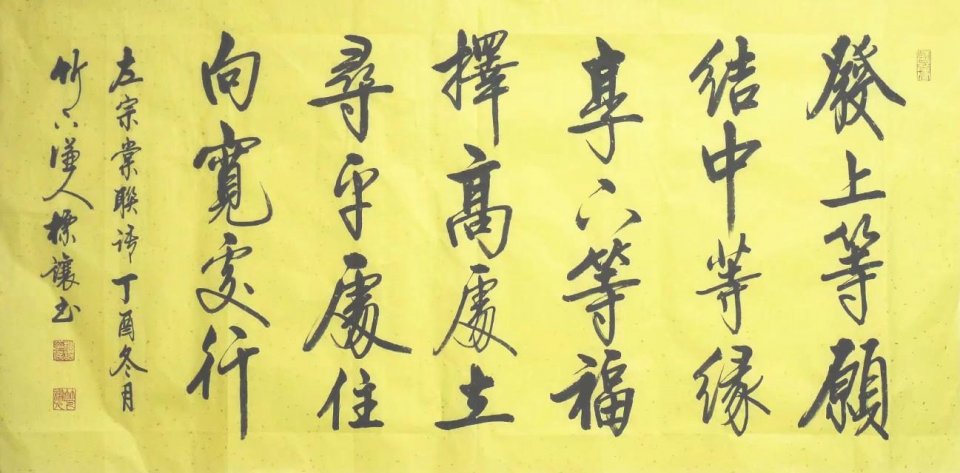 發上等願
結中等緣
享下等福
擇高處立
尋平處住
向寬處行
左宗棠聯語丁酉冬月
竹下漢人樣讓書